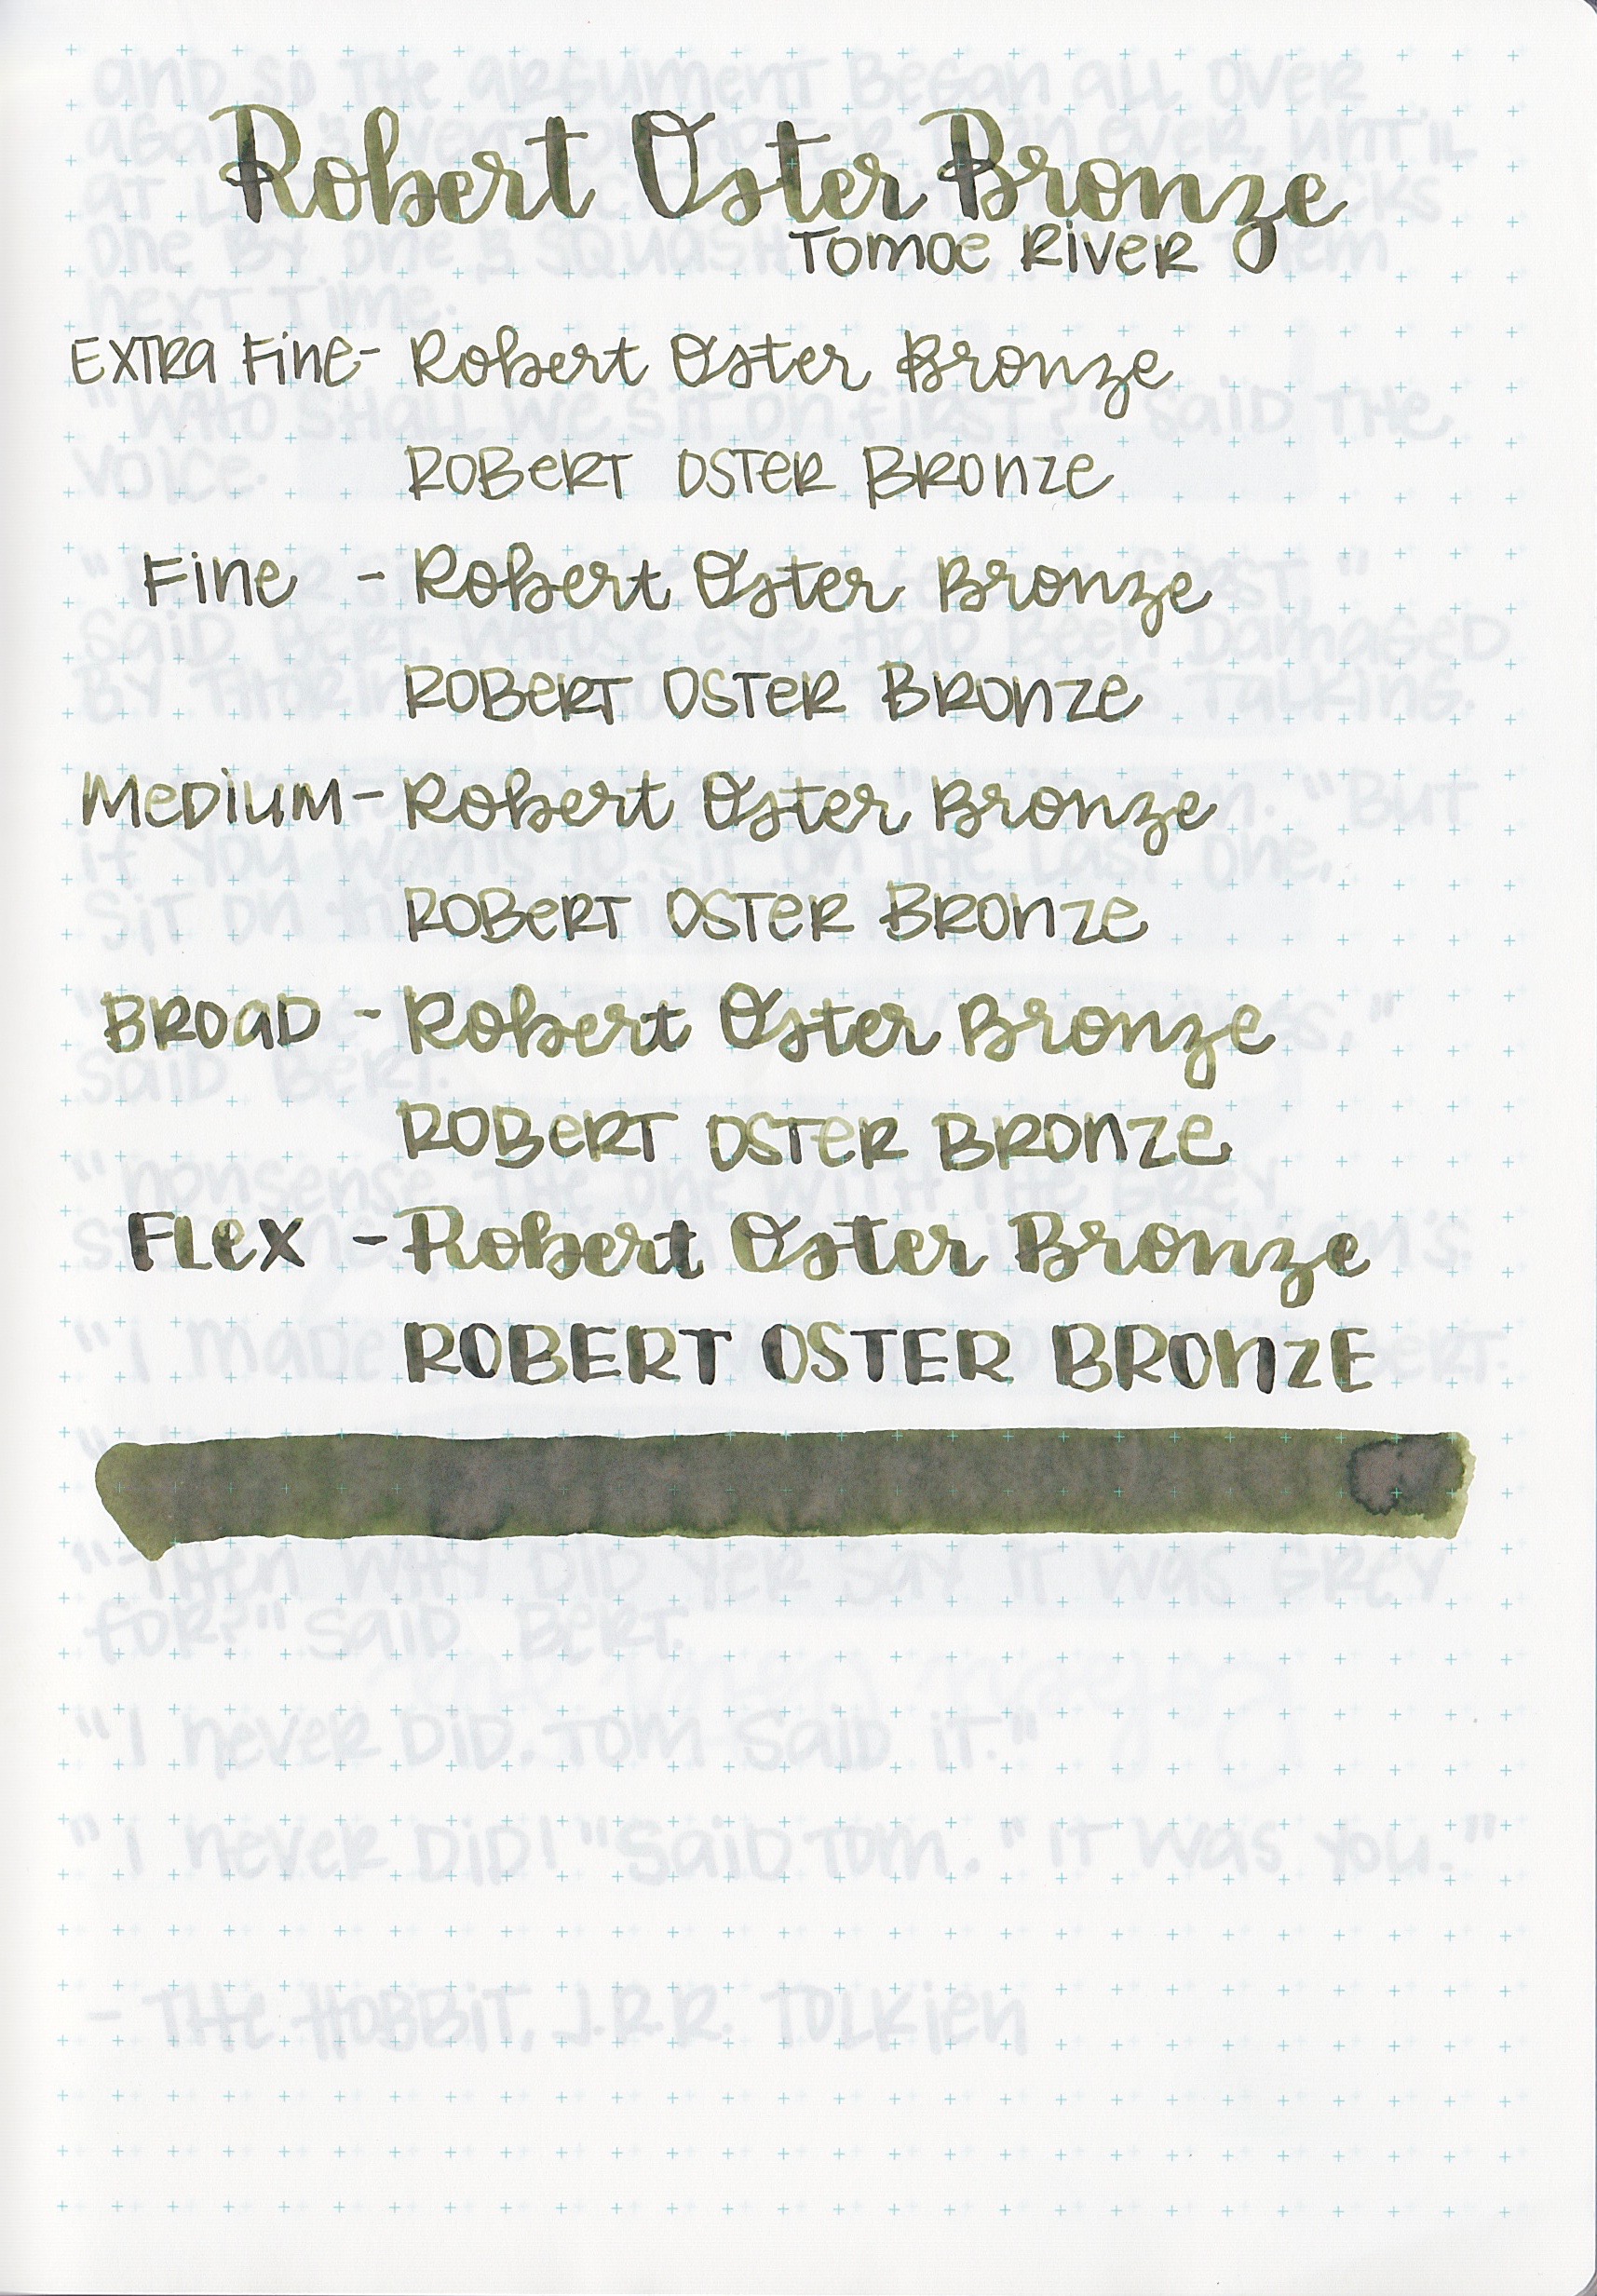 Robert Oster Bronze
Tomoe River
Extra Fine- Robert Oster Bronze
Robert Oster Bronze
Fine - Robert Oster Bronze
Robert Oster Bronze
Medium- Robert Oster Bronze
Robert Oster Bronze
Broad - Robert Oster Bronze
Robert Oster Bronze
Flex - Robert Oster Bronze
ROBERT OSTER BRONZE
and so the argument began all over
one by one & squash
next time.
"Who shall we sit on first?" said the
voice.
said Bert, whose eye had been damaged
By Thorin talking.
"But
if you wants to sit on the last one,
sit on
said Bert.
"nonsense, the one with the grey
"I made
"Then why did yer say it was grey
for?" said Bert.
"I never did. Tom said it."
"I never did!" said Tom. "It was you."
- The Hobbit, J.R.R. Tolkien